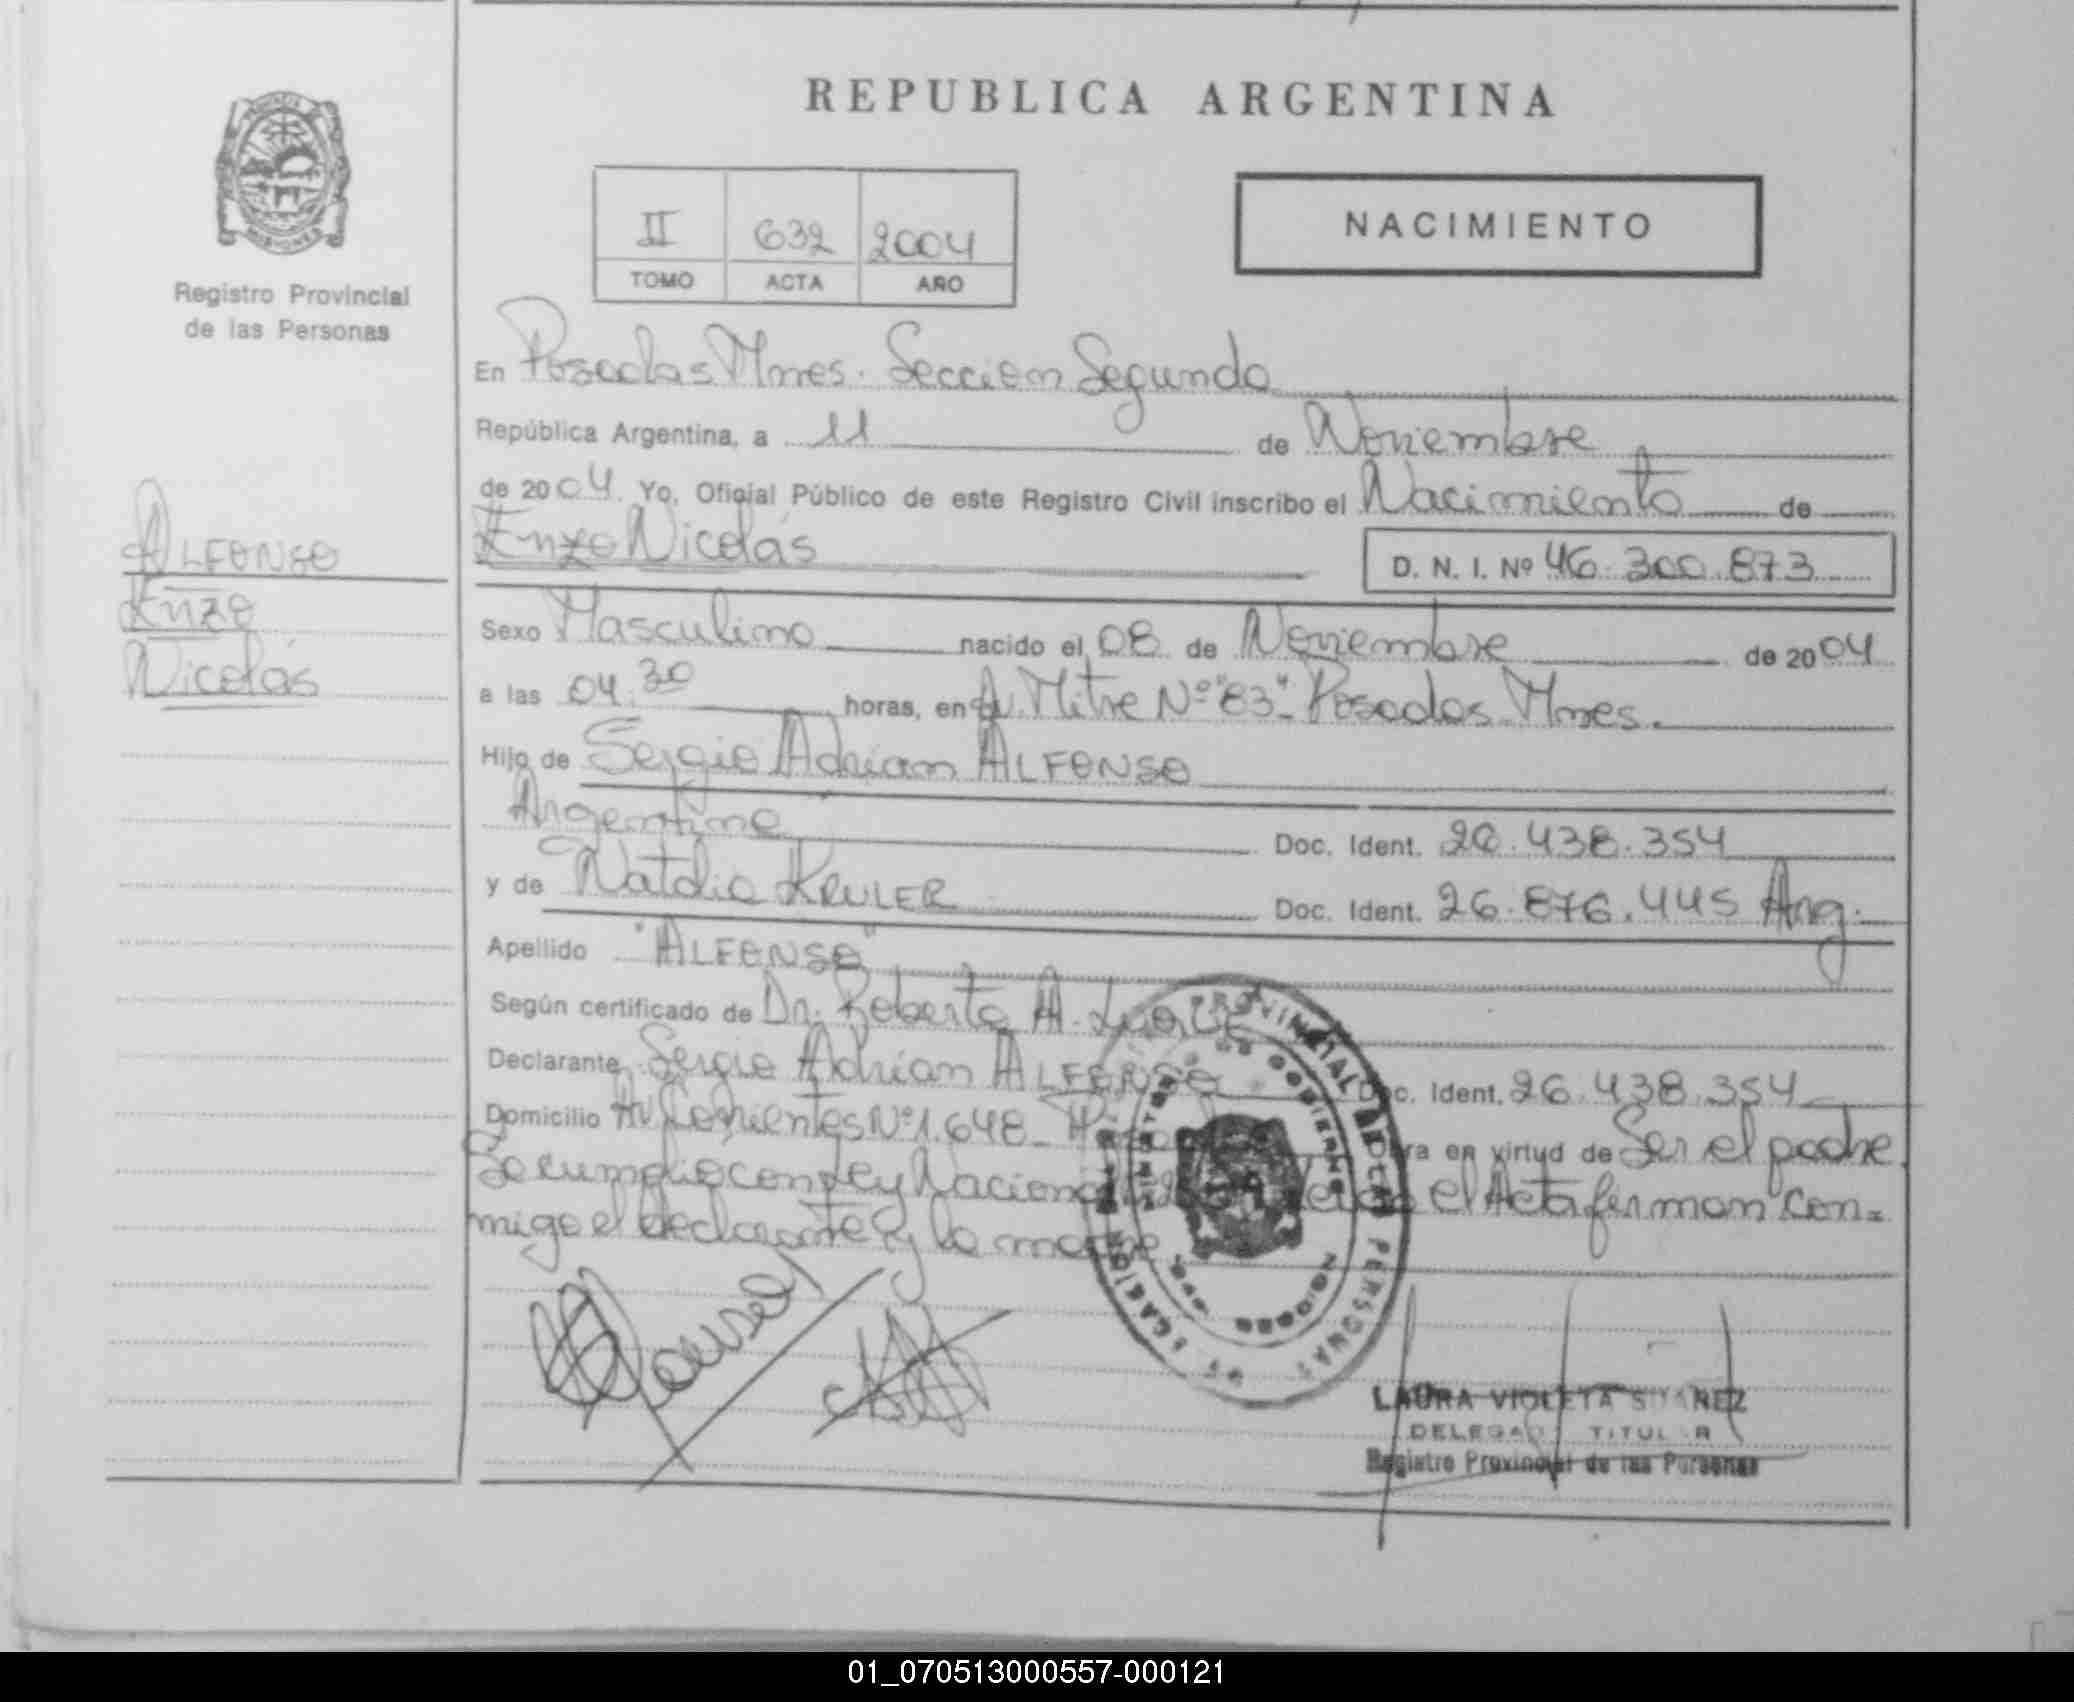 REPUBLICA ARGENTINA
Registro Provincial
de las Personas
II 632 2004
TOMO ACTA AÑO
NACIMIENTO
En Posadas Mnes. Seccion Segunda
República Argentina, a 11 de Noviembre
de 2004. Yo, Oficial Público de este Registro Civil inscribo el Nacimiento de
Enzo Nicolás
D. N. I. Nº 46.300.873
ALFONSO
Enzo
Nicolás
Sexo Masculino nacido el 08 de Noviembre de 2004
a las 04:30 horas, en Av. Mitre Nº "83". Posadas Mnes.
Hijo de Sergio Adrian ALFONSO
Argentino Doc. Ident. 26.438.354
y de Natalia KRULER Doc. Ident. 26.876.445 Arg.
Apellido "ALFONSO"
Según certificado de Dr. Roberto A.
Declarante Sergio Adrian ALFONSO Doc. Ident. 26.438.354
Domicilio Av. Corrientes Nº 1.648 - en virtud de Ser el padre.
Se cumplio con Ley Nacional el Acta firman con=
migo el declarante y la madre
PROVINCIAL DE LAS PERSONAS
LAURA VIOLETA SUAREZ
DELEGADO TITULAR
Registro Provincial de las Personas
01_070513000557-000121